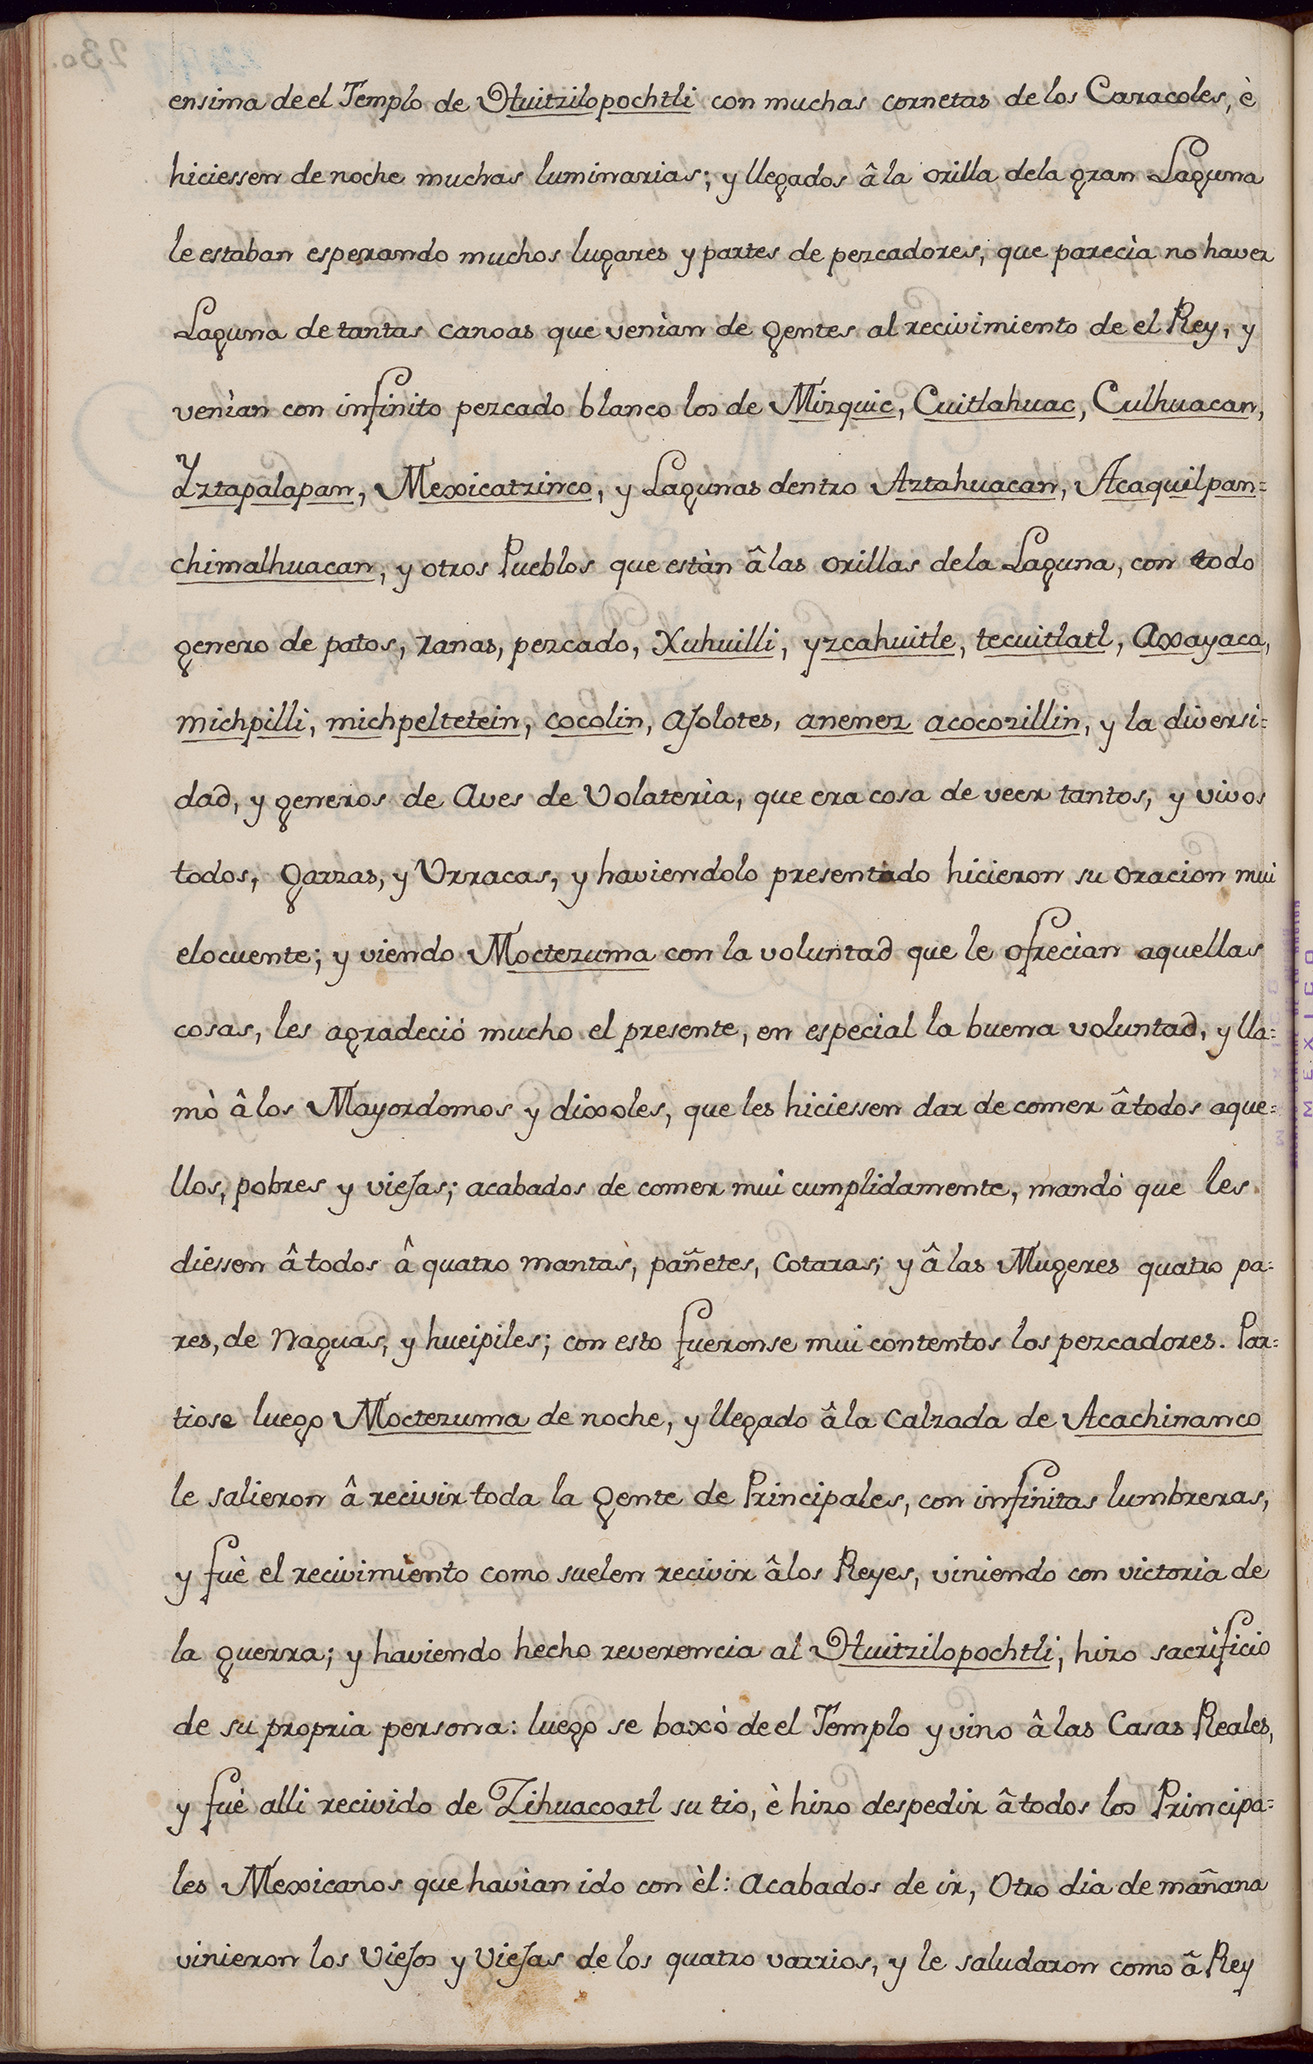 ensima de el Templo de Huitzilopochtli con muchas cornetas de los Caracoles, è
hiciessen de noche muchas luminarias; y llegados â la orilla dela gran Laguna
le estaban esperando muchos lugares y partes de pezcadores, que parecìa no haver
Laguna de tantas canoas que venìan de gentes al recivimiento de el Rey, y
venìan con infinito pezcado blanco los de Mizquic, Cuitlahuac, Culhuacan,
Yztapalapan, Mexicatzinco, y Lagunas dentro Aztahuacan, Acaquilpan=
chimalhuacan, y otros Pueblos que estàn â las orillas dela Laguna, con todo
genero de patos, ranas, pezcado, Xuhuilli, yzcahuitle, tecuitlatl, axayaca,
michpilli, michpeltetein, cocolin, ajolotes, anenez acocozillin, y la diversi=
dad, y generos de Aves de Volaterìa, que era cosa de veer tantos, y vivos
todos, garzas, y Urracas, y haviendolo presentado hicieron su oracion mui
elocuente; y viendo Moctezuma con la voluntad que le ofrecìan aquellas
cosas, les agradeciò mucho el presente, en especial la buena voluntad, y lla=
mò â los Mayordomos y dixoles, que les hiciessen dar de comer â todos aque=
llos, pobres y viejas; acabados de comer mui cumplidamente, mandò que les
diessen â todos â quatro mantas, pañetes, cotaras; y â las Mugeres quatro pa=
res, de Naguas, y hueipiles; con esto fueronse mui contentos los pezcadores. Par=
tiose luego Moctezuma de noche, y llegado â la calzada de Acachinanco
le salieron â recivir toda la gente de Principales, con infinitas lumbreras,
y fuè el recivimiento como suelen recivir âlos Reyes, viniendo con victoria de
la guerra; y haviendo hecho reverencia al Huitzilopochtli, hizo sacrificio
de su propria persona: luego se baxò de el Templo y vino â las Casas Reales,
y fuè alli recivido de Zihuacoatl su tio, è hizo despedir â todos los Principa=
les Mexicanos que havian ido con èl: acabados de ir, Otro dia de mañana
vinieron los Viejos y Viejas de los quatro varrios, y le saludaron como â Rey